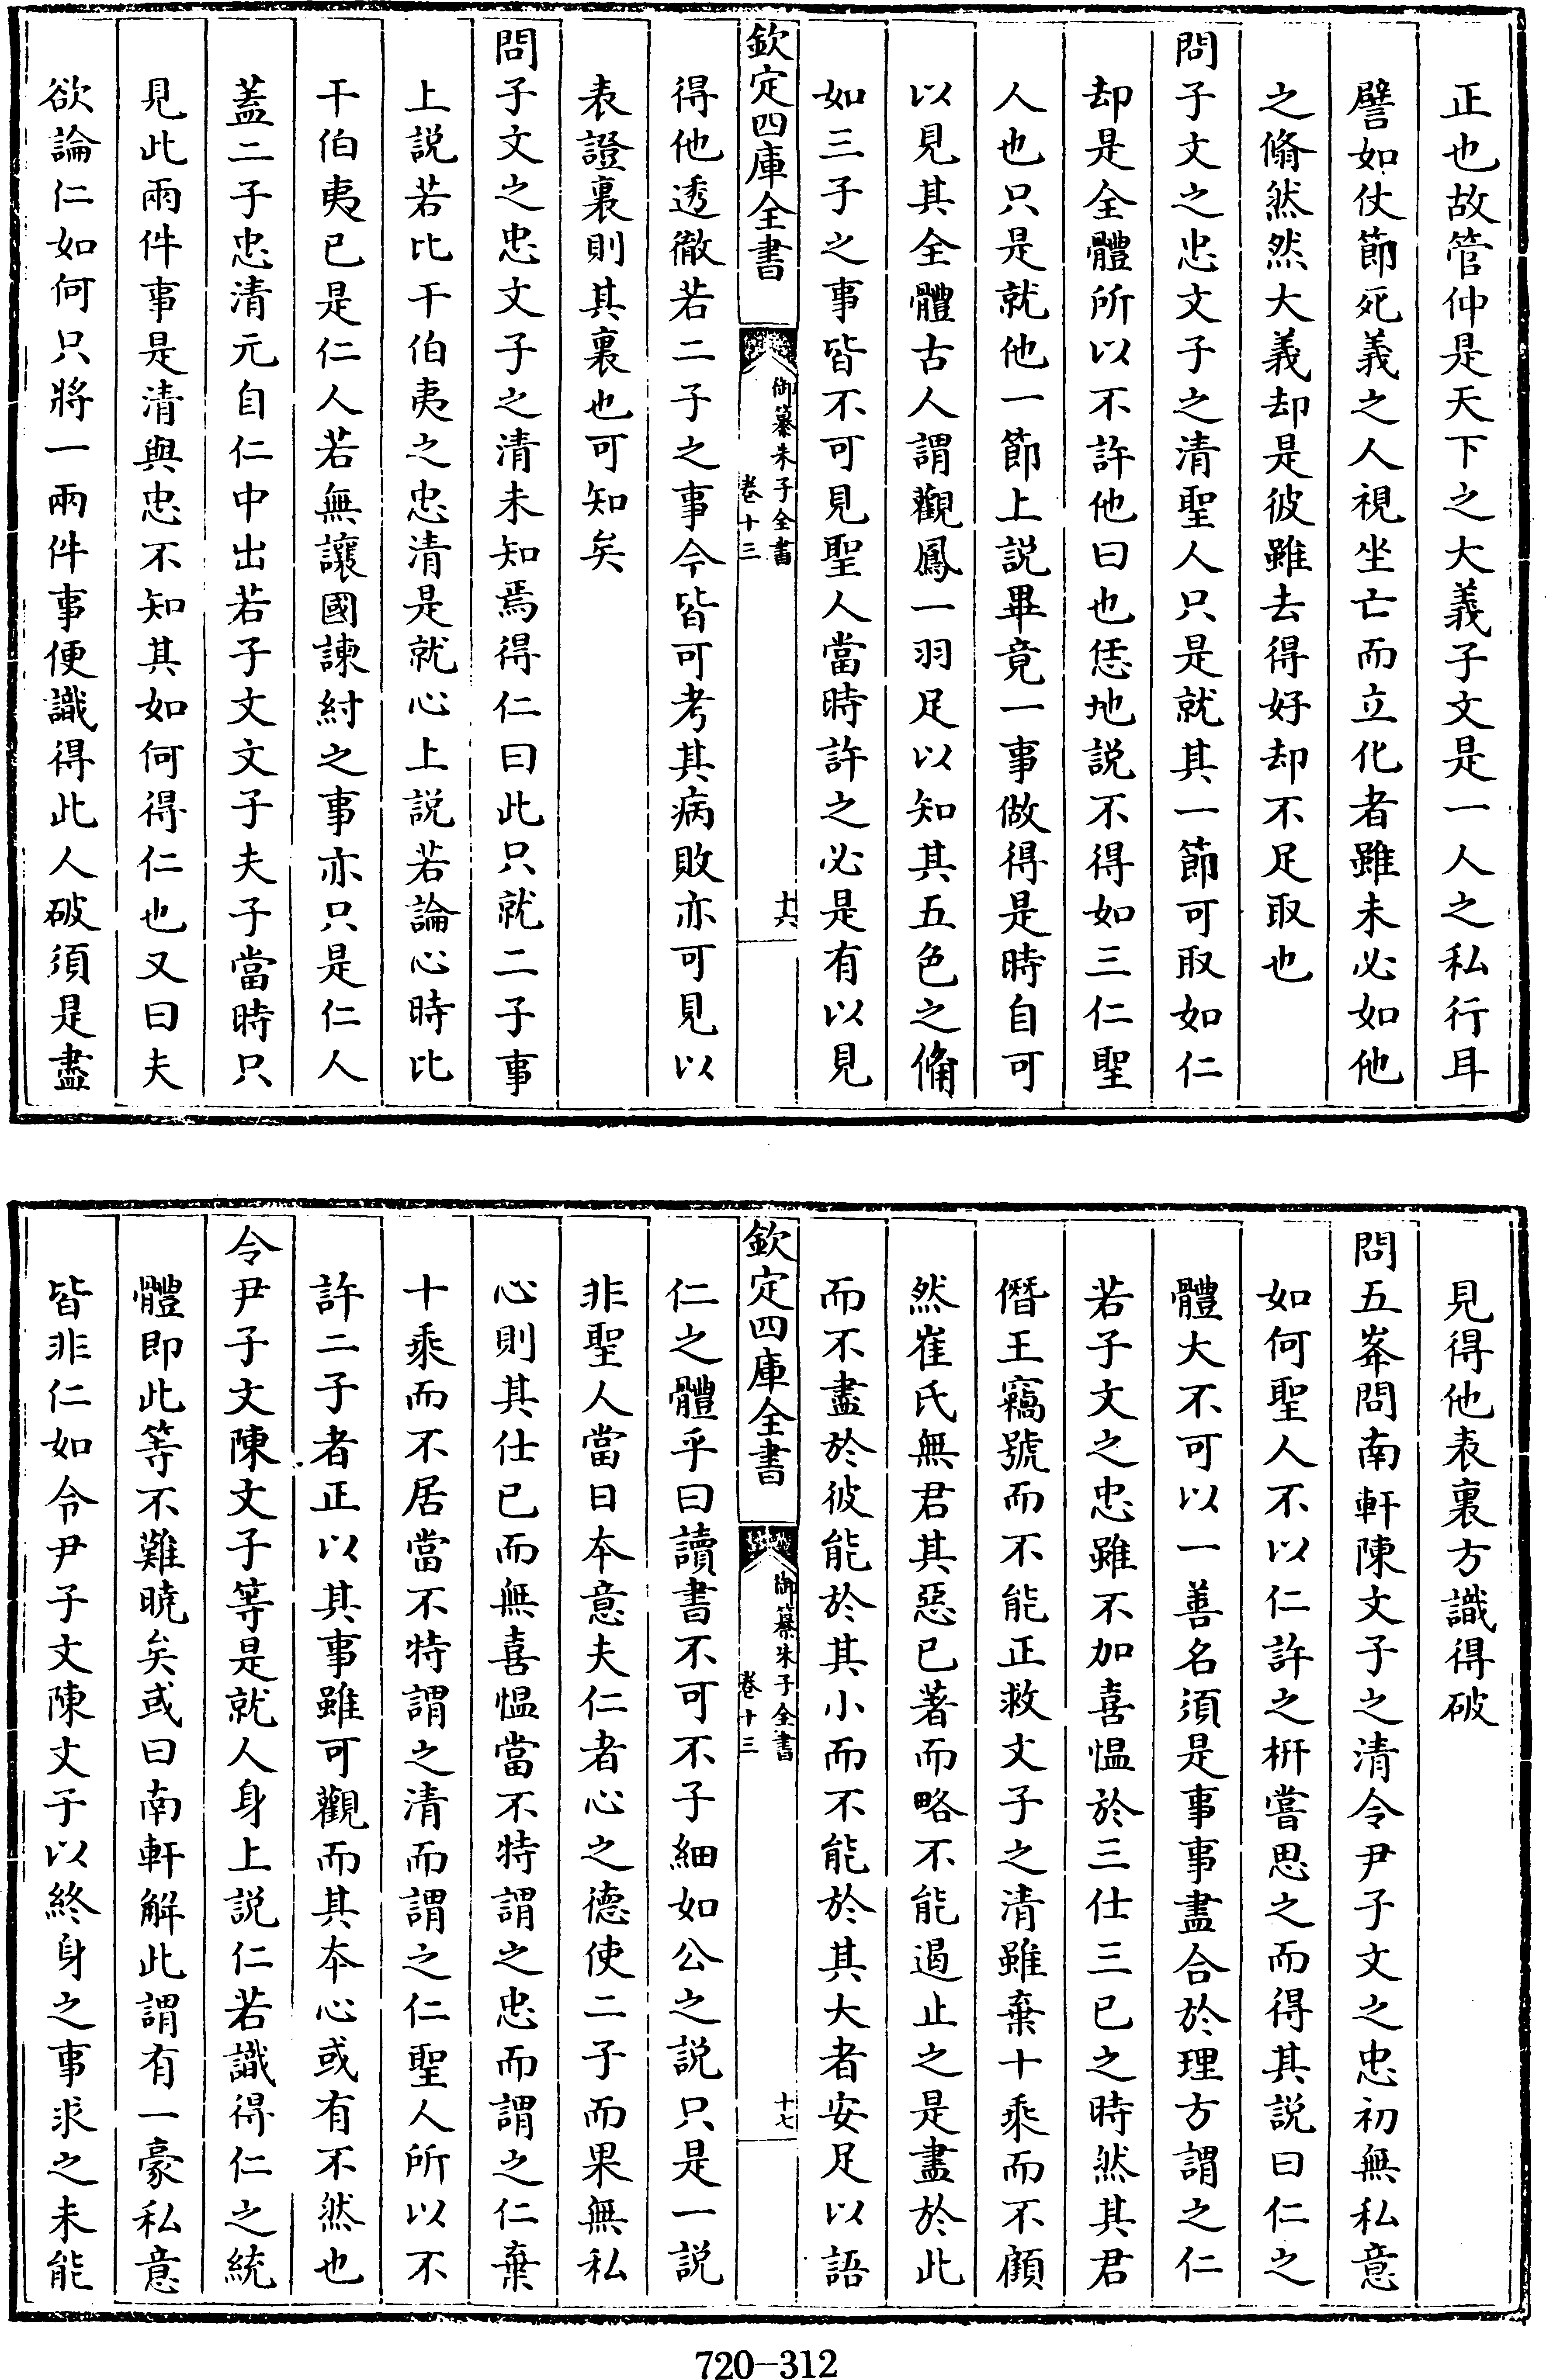 正也故管仲是天下之大義子文是一人之私行耳
譬如仗節死義之人視坐亡而立化者雖未必如他
之翛然然大義却是彼雖去得好却不足取也
問子文之忠文子之清聖人只是就其一節可取如仁
却是全體所以不許他曰也恁地説不得如三仁聖
人也只是就他一節上説畢竟一事做得是時自可
以見其全體古人謂觀鳳一羽足以知其五色之備
如三子之事皆不可見聖人當時許之必是有以見
欽定四庫全書
御纂朱子全書
卷十三
十六
得他透徹若二子之事今皆可考其病敗亦可見以
表證裏則其裏也可知矣
問子文之忠文子之清未知焉得仁曰此只就二子事
上説若比干伯夷之忠清是就心上説若論心時比
干伯夷已是仁人若無讓國諫紂之事亦只是仁人
蓋二子忠清元自仁中出若子文文子夫子當時只
見此兩件事是清與忠不知其如何得仁也又曰夫
欲論仁如何只將一兩件事便識得此人破須是盡
見得他表裏方識得破
問五峯問南軒陳文子之清令尹子文之忠初無私意
如何聖人不以仁許之枅嘗思之而得其説曰仁之
體大不可以一善名須是事事盡合於理方謂之仁
若子文之忠雖不加喜愠於三仕三已之時然其君
僭王竊號而不能正救文子之清雖棄十乘而不顧
然崔氏無君其惡已著而略不能遏止之是盡於此
而不盡於彼能於其小而不能於其大者安足以語
欽定四庫全書
御纂朱子全書
卷十三
十七
仁之體乎曰讀書不可不子細如公之説只是一説
非聖人當日本意夫仁者心之德使二子而果無私
心則其仕已而無喜愠當不特謂之忠而謂之仁棄
十乘而不居當不特謂之清而謂之仁聖人所以不
許二子者正以其事雖可觀而其本心或有不然也
令尹子文陳文子等是就人身上説仁若識得仁之統
體即此等不難曉矣或曰南軒解此謂有一豪私意
皆非仁如令尹子文陳文子以終身之事求之未能
720-312